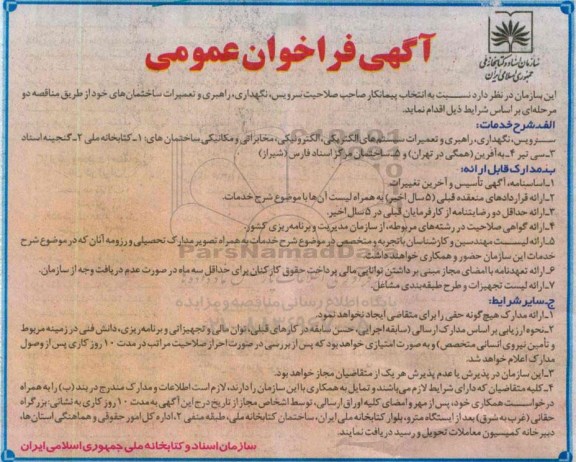 سازمان اسناد و کتابخانه ملی
جمهوری اسلامی ایران
آگهی فراخوان عمومی
این سازمان در نظر دارد نسبت به انتخاب پیمانکار صاحب صلاحیت سرویس، نگهداری، راهبری و تعمیرات ساختمان‌های خود از طریق مناقصه دو
مرحله‌ای بر اساس شرایط ذیل اقدام نماید.
الف‌ـ شرح خدمات:
سرویس، نگهداری، راهبری و تعمیرات سیستم‌های الکتریکی، الکترونیکی، مخابراتی و مکانیکی ساختمان های: ۱ـ کتابخانه ملی ۲ـ گنجینه اسناد
۳ـ سی تیر ۴ـ به‌آفرین (همگی در تهران) و ۵ـ ساختمان مرکز اسناد فارس (شیراز)
ب‌ـ مدارک قابل ارائه:
۱ـ اساسنامه، آگهی تأسیس و آخرین تغییرات.
۲ـ ارائه قراردادهای منعقده قبلی (۵ سال اخیر) به همراه لیست آن‌ها با موضوع شرح خدمات.
۳ـ ارائه حداقل دو رضایتنامه از کارفرمایان قبلی در ۵ سال اخیر.
۴ـ ارائه گواهی صلاحیت در رشته‌های مربوطه، از سازمان مدیریت و برنامه‌ریزی کشور.
۵ـ ارائه لیست مهندسین و کارشناسان باتجربه و متخصص در موضوع شرح خدمات به همراه تصویر مدارک تحصیلی و رزومه آنان که در موضوع شرح
خدمات این سازمان حضور و همکاری خواهند داشت.
۶ـ ارائه تعهدنامه با امضای مجاز مبنی بر داشتن توانایی مالی پرداخت حقوق کارکنان برای حداقل سه ماه در صورت عدم دریافت وجه از سازمان.
۷ـ ارائه لیست تجهیزات و طرح طبقه‌بندی مشاغل.
ج‌ـ سایر شرایط:
۱ـ ارائه مدارک هیچ‌گونه حقی را برای متقاضی ایجاد نخواهد نمود.
۲ـ نحوه ارزیابی بر اساس مدارک ارسالی (سابقه اجرایی، حسن سابقه در کارهای قبلی، توان مالی و تجهیزاتی و برنامه‌ریزی، دانش فنی در زمینه مربوط
و تأمین نیروی انسانی متخصص) و به صورت امتیازی خواهد بود که پس از بررسی در صورت احراز صلاحیت مراتب در مدت ۱۰ روز کاری پس از وصول
مدارک اعلام خواهد شد.
۳ـ این سازمان در پذیرش یا عدم پذیرش هر یک از متقاضیان مجاز خواهد بود.
۴ـ کلیه متقاضیان که دارای شرایط لازم می‌باشند و تمایل به همکاری با این سازمان را دارند، لازم است اطلاعات و مدارک مندرج در بند (ب) را به همراه
درخواست همکاری خود، پس از مهر و امضای کلیه اوراق ارسالی، توسط اشخاص مجاز از تاریخ درج این آگهی به مدت ۱۰ روز کاری به نشانی: بزرگراه
حقانی (غرب به شرق) بعد از ایستگاه مترو، بلوار کتابخانه ملی ایران، ساختمان کتابخانه ملی، طبقه منفی ۲، اداره کل امور حقوقی و هماهنگی استان‌ها،
دبیرخانه کمیسیون معاملات تحویل و رسید دریافت نمایند.
سازمان اسناد و کتابخانه ملی جمهوری اسلامی ایران